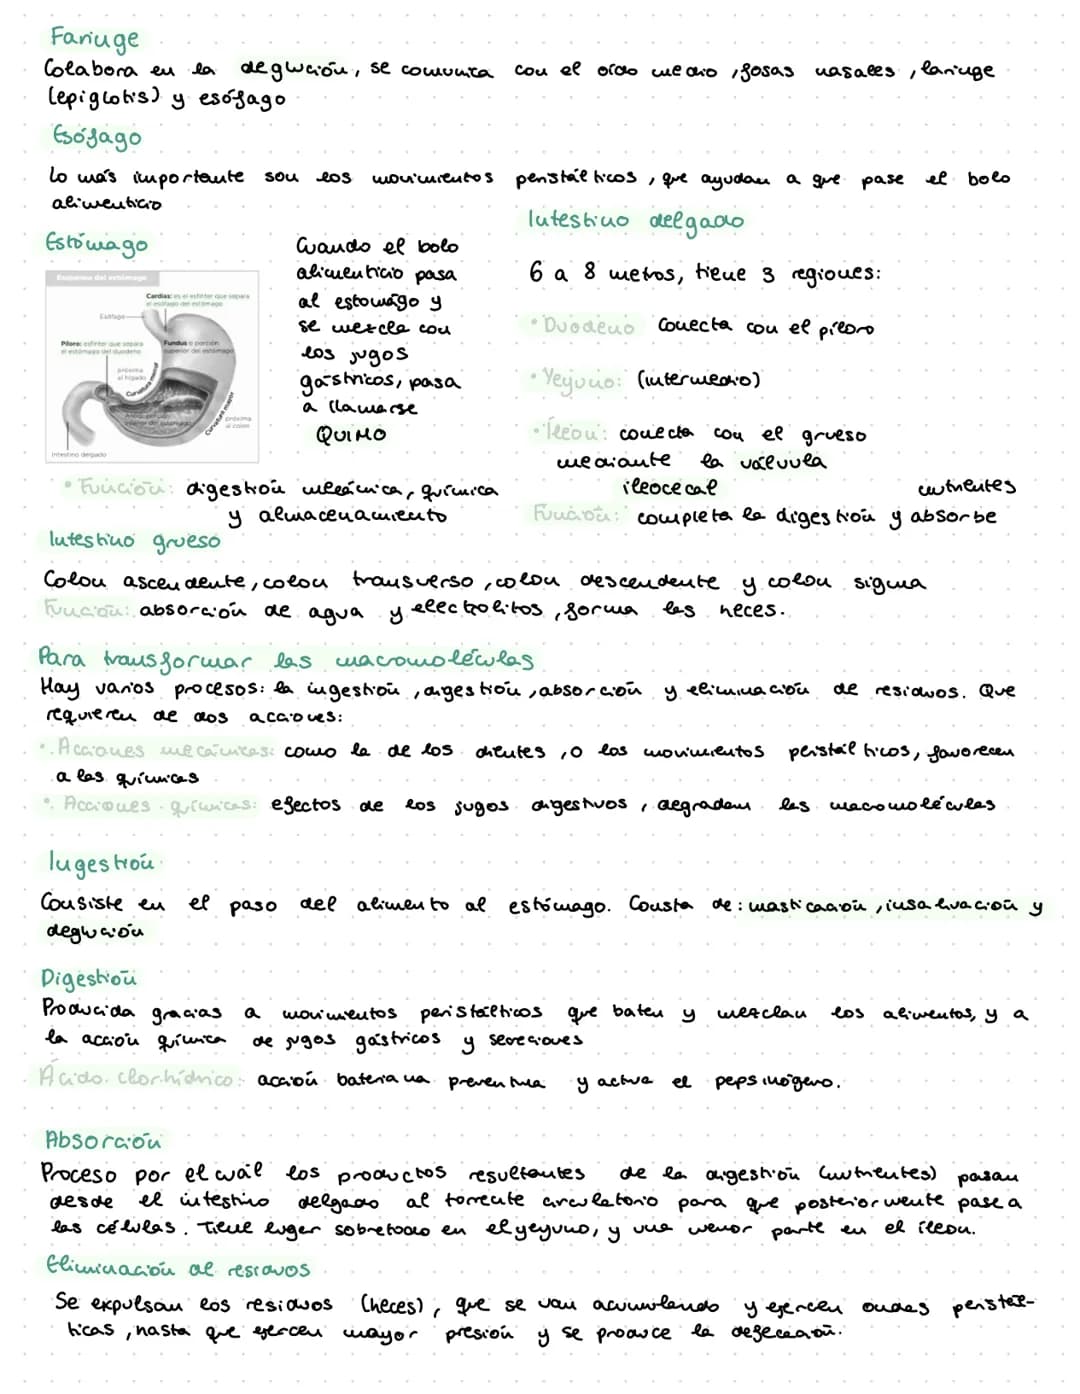 Faringe
Colabora en la deglución, se comunica con el oído medio, fosas nasales, laringe
(epiglotis) y esófago
Esófago
Lo más importante son los movimientos peristálticos, que ayudan a que pase el bolo
alimenticio
Estómago
Esquema del estómago
Cardias: es el esfínter que separa
el esófago del estómago
Esófago
Píloro: esfínter que separa
el estómago del duodeno
Fundus o porción
superior del estómago
próxima
al hígado
Curvatura menor
Curvatura mayor
próxima
al colon
Intestino delgado
Cuando el bolo
alimenticio pasa
al estomágo y
se mezcla con
los jugos
gástricos, pasa
a llamarse
QUIMO
• Función: digestión mecánica, química
y almacenamiento
Intestino delgado
6 a 8 metros, tiene 3 regiones:
• Duodeno conecta con el píloro
• Yeyuno: (intermedio)
• Íleon: conecta con el grueso
mediante la válvula
ileocecal
nutrientes
Función: completa la digestión y absorbe
Intestino grueso
Colon ascendente, colon transverso, colon descendente y colon sigma
Función: absorción de agua y electrolitos, forma las heces.
Para transformar las macromoléculas
Hay varios procesos: la ingestión, digestión, absorción y eliminación de residuos. Que
requieren de dos acciones:
• Acciones mecánicas: como la de los dientes, o los movimientos peristálticos, favorecen
a las químicas
• Acciones químicas: efectos de los jugos digestivos, degradan las macomoléculas
Ingestión
Consiste en el paso del alimento al estómago. Consta de: masticación, insalivación y
deglución
Digestión
Producida gracias a movimientos peristálticos que baten y mezclan los alimentos, y a
la acción química de jugos gástricos y secreciones
Ácido clorhídrico: acción bateriana preventiva y activa el pepsinógeno.
Absorción
Proceso por el cuál los productos resultantes de la digestión (nutrientes) pasan
desde el intestino delgado al torrente circulatorio para que posteriormente pase a
las células. Tiene lugar sobretodo en el yeyuno, y una menor parte en el íleon.
Eliminación de residuos
Se expulsan los residuos (heces), que se van acumulando y ejercen ondas peristál-
ticas, hasta que ejercen mayor presión y se produce la defecación.